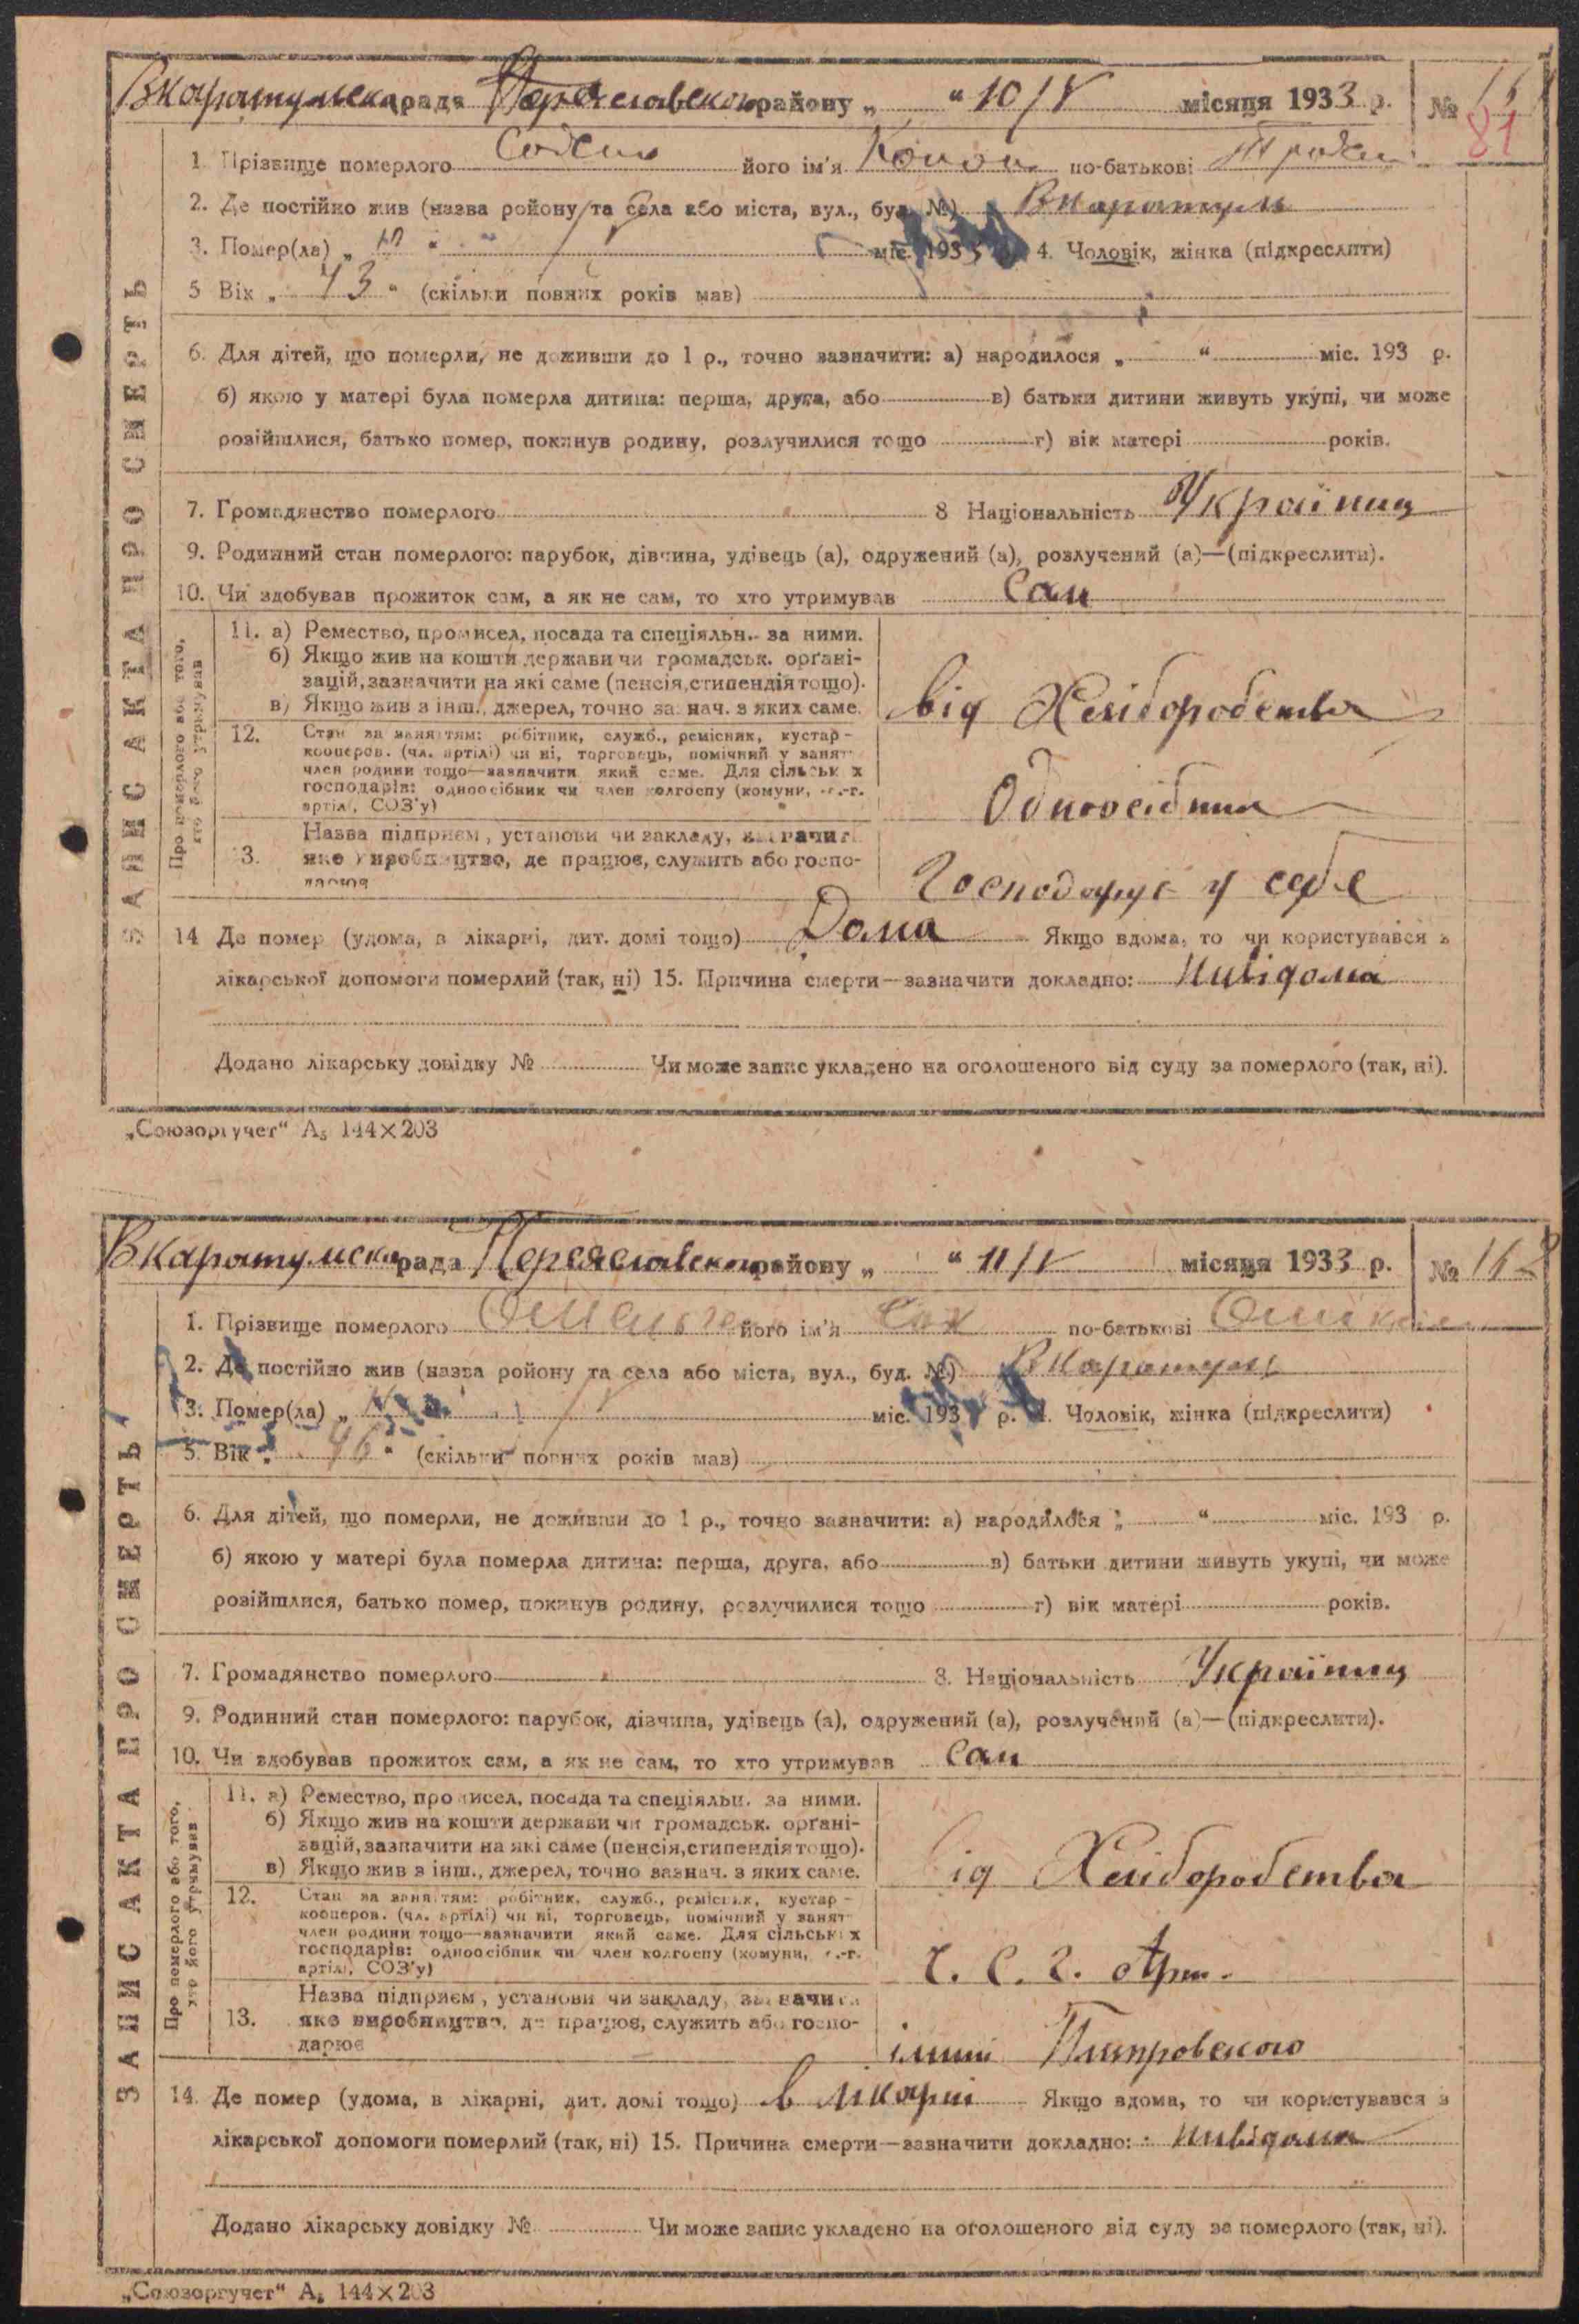 Вкаратульска рада Переяславского району „ “ 10/V місяця 1933 р. №
81
1. Прізвище померлого його ім'я Конон по-батькові
2. Де постійно жив (назва ройону та села або міста, вул., буд. №) Вкаратуль
3. Помер(ла) „ 10 “ /V міс. 1933 4. Чоловік, жінка (підкреслити)
5 Вік „ 43 “ (скільки повних років мав)
ЗАПИС АКТА ПРО СМЕРТЬ
6. Для дітей, що померли, не доживши до 1 р., точно зазначити: а) народилося „ “ міс. 193 р.
б) якою у матері була померла дитина: перша, друга, або в) батьки дитини живуть укупі, чи може
розійшлися, батько помер, покинув родину, розлучилися тощо г) вік матері років.
7. Громадянство померлого 8 Національність Україниц
9. Родинний стан померлого: парубок, дівчина, удівець (а), одружений (а), розлучений (а)—(підкреслити).
10. Чи здобував прожиток сам, а як не сам, то хто утримував Сам
Про померлого або того, хто його утримував
11. а) Ремество, промисел, посада та спеціяльн. за ними.
б) Якщо жив на кошти держави чи громадськ. орґані-
зацій, зазначити на які саме (пенсія, стипендія тощо).
в) Якщо жив з інш., джерел, точно зазнач. з яких саме.
від Хлібородства
12. Стан за заняттям: робітник, служб., ремісник, кустар-
кооперов. (чл. артілі) чи ні, торговець, помічний у занят
член родини тощо—зазначити який саме. Для сільськ х
господарів: одноосібник чи член колгоспу (комуни, с.-г.
артілі, СОЗ'у)
Одноосібник
13. Назва підприєм, установи чи закладу, зазначити
яке виробництво, де працює, служить або госпо-
дарює
Господарує у себе
14 Де помер (удома, в лікарні, дит. домі тощо) Дома Якщо вдома, то чи користувався з
лікарської допомоги померлий (так, ні) 15. Причина смерти—зазначити докладно: Нивідома
Додано лікарську довідку № Чи може запис укладено на оголошеного від суду за померлого (так, ні).
„Союзоргучет“ А₅ 144×203
Вкаратульска рада Переяславского району „ “ 11/V місяця 1933 р. № 162
1. Прізвище померлого його ім'я по-батькові
2. Де постійно жив (назва ройону та села або міста, вул., буд. №) Вкаратуль
3. Помер(ла) „ /V міс. 193 р. 4. Чоловік, жінка (підкреслити)
5. Вік „ 46 “ (скільки повних років мав)
ЗАПИС АКТА ПРО СМЕРТЬ
6. Для дітей, що померли, не доживши до 1 р., точно зазначити: а) народилося „ “ міс. 193 р.
б) якою у матері була померла дитина: перша, друга, або в) батьки дитини живуть укупі, чи може
розійшлися, батько помер, покинув родину, розлучилися тощо г) вік матері років.
7. Громадянство померлого 8. Національність Україниц
9. Родинний стан померлого: парубок, дівчина, удівець (а), одружений (а), розлучений (а)—(підкреслити).
10. Чи здобував прожиток сам, а як не сам, то хто утримував Сам
Про померлого або того, хто його утримував
11. а) Ремество, промисел, посада та спеціяльн. за ними.
б) Якщо жив на кошти держави чи громадськ. орґані-
зацій, зазначити на які саме (пенсія, стипендія тощо).
в) Якщо жив з інш., джерел, точно зазнач. з яких саме.
від Хлібородства
12. Стан за заняттям: робітник, служб., ремісник, кустар-
кооперов. (чл. артілі) чи ні, торговець, помічний у занят
член родини тощо—зазначити який саме. Для сільських
господарів: одноосібник чи член колгоспу (комуни, с.-г.
артілі, СОЗ'у)
Ч. С. Г. Арт.
13. Назва підприєм, установи чи закладу, зазначити
яке виробництво, де працює, служить або госпо-
дарює
імині Питровского
14. Де помер (удома, в лікарні, дит. домі тощо) в лікарні Якщо вдома, то чи користувався з
лікарської допомоги померлий (так, ні) 15. Причина смерти—зазначити докладно: Нивідома
Додано лікарську довідку № Чи може запис укладено на оголошеного від суду за померлого (так, ні).
„Союзоргучет“ А₅ 144×203